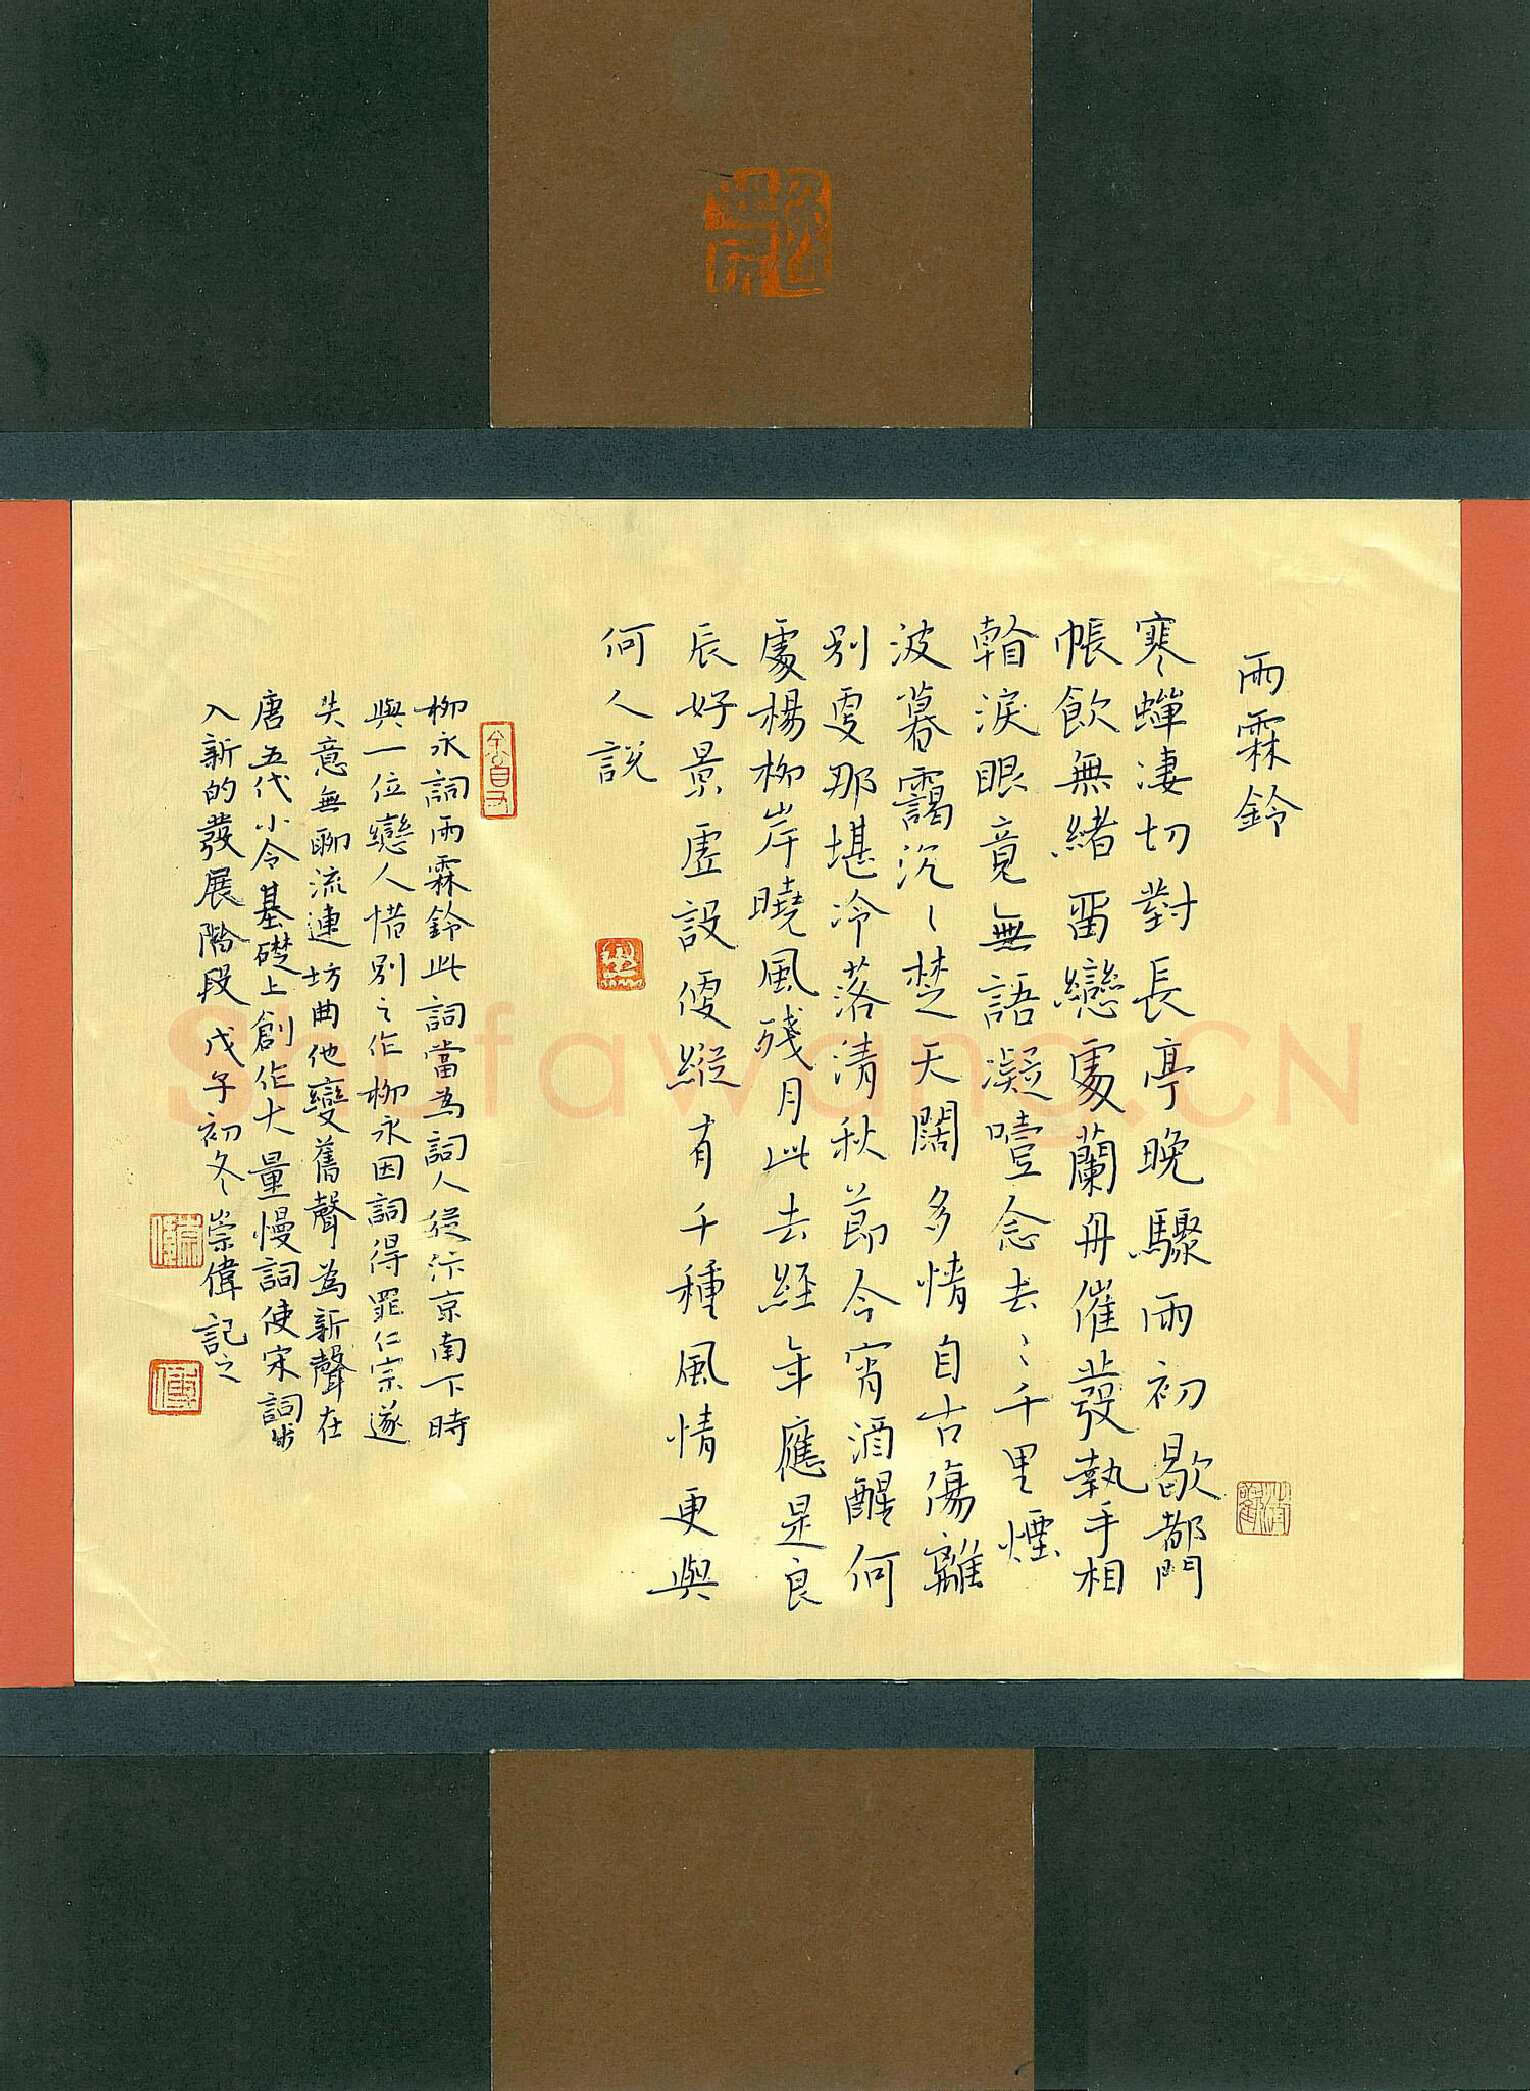 雨霖鈴
寒蟬淒切對長亭晚驟雨初歇都門
帳飲無緒畱戀處蘭舟催發執手相
看淚眼竟無語凝噎念去〻千里煙
波暮靄沉〻楚天闊多情自古傷離
別更那堪冷落清秋節今宵酒醒何
處楊柳岸曉風殘月此去經年應是良
辰好景虛設便縱有千種風情更與
何人說
柳永詞雨霖鈴此詞當為詞人從汴京南下時
與一位戀人惜別之作柳永因詞得罪仁宗遂
失意無聊流連坊曲他變舊聲為新聲在
唐五代小令基礎上創作大量慢詞使宋詞步
入新的發展階段戊子初冬崇偉記之
Shufawang.CN